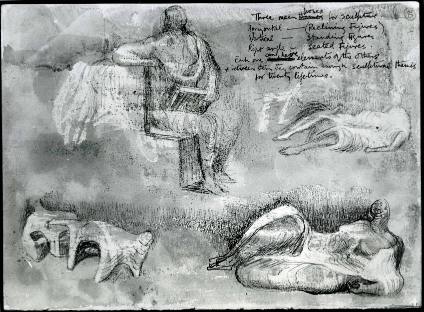 Three main poses for sculpture
Horizontal — (Reclining Figures)
Vertical — Standing Figures
Right angle — Seated Figures
Each one and have elements of the others
& between them they contain enough sculptural themes
for twenty lifetimes.